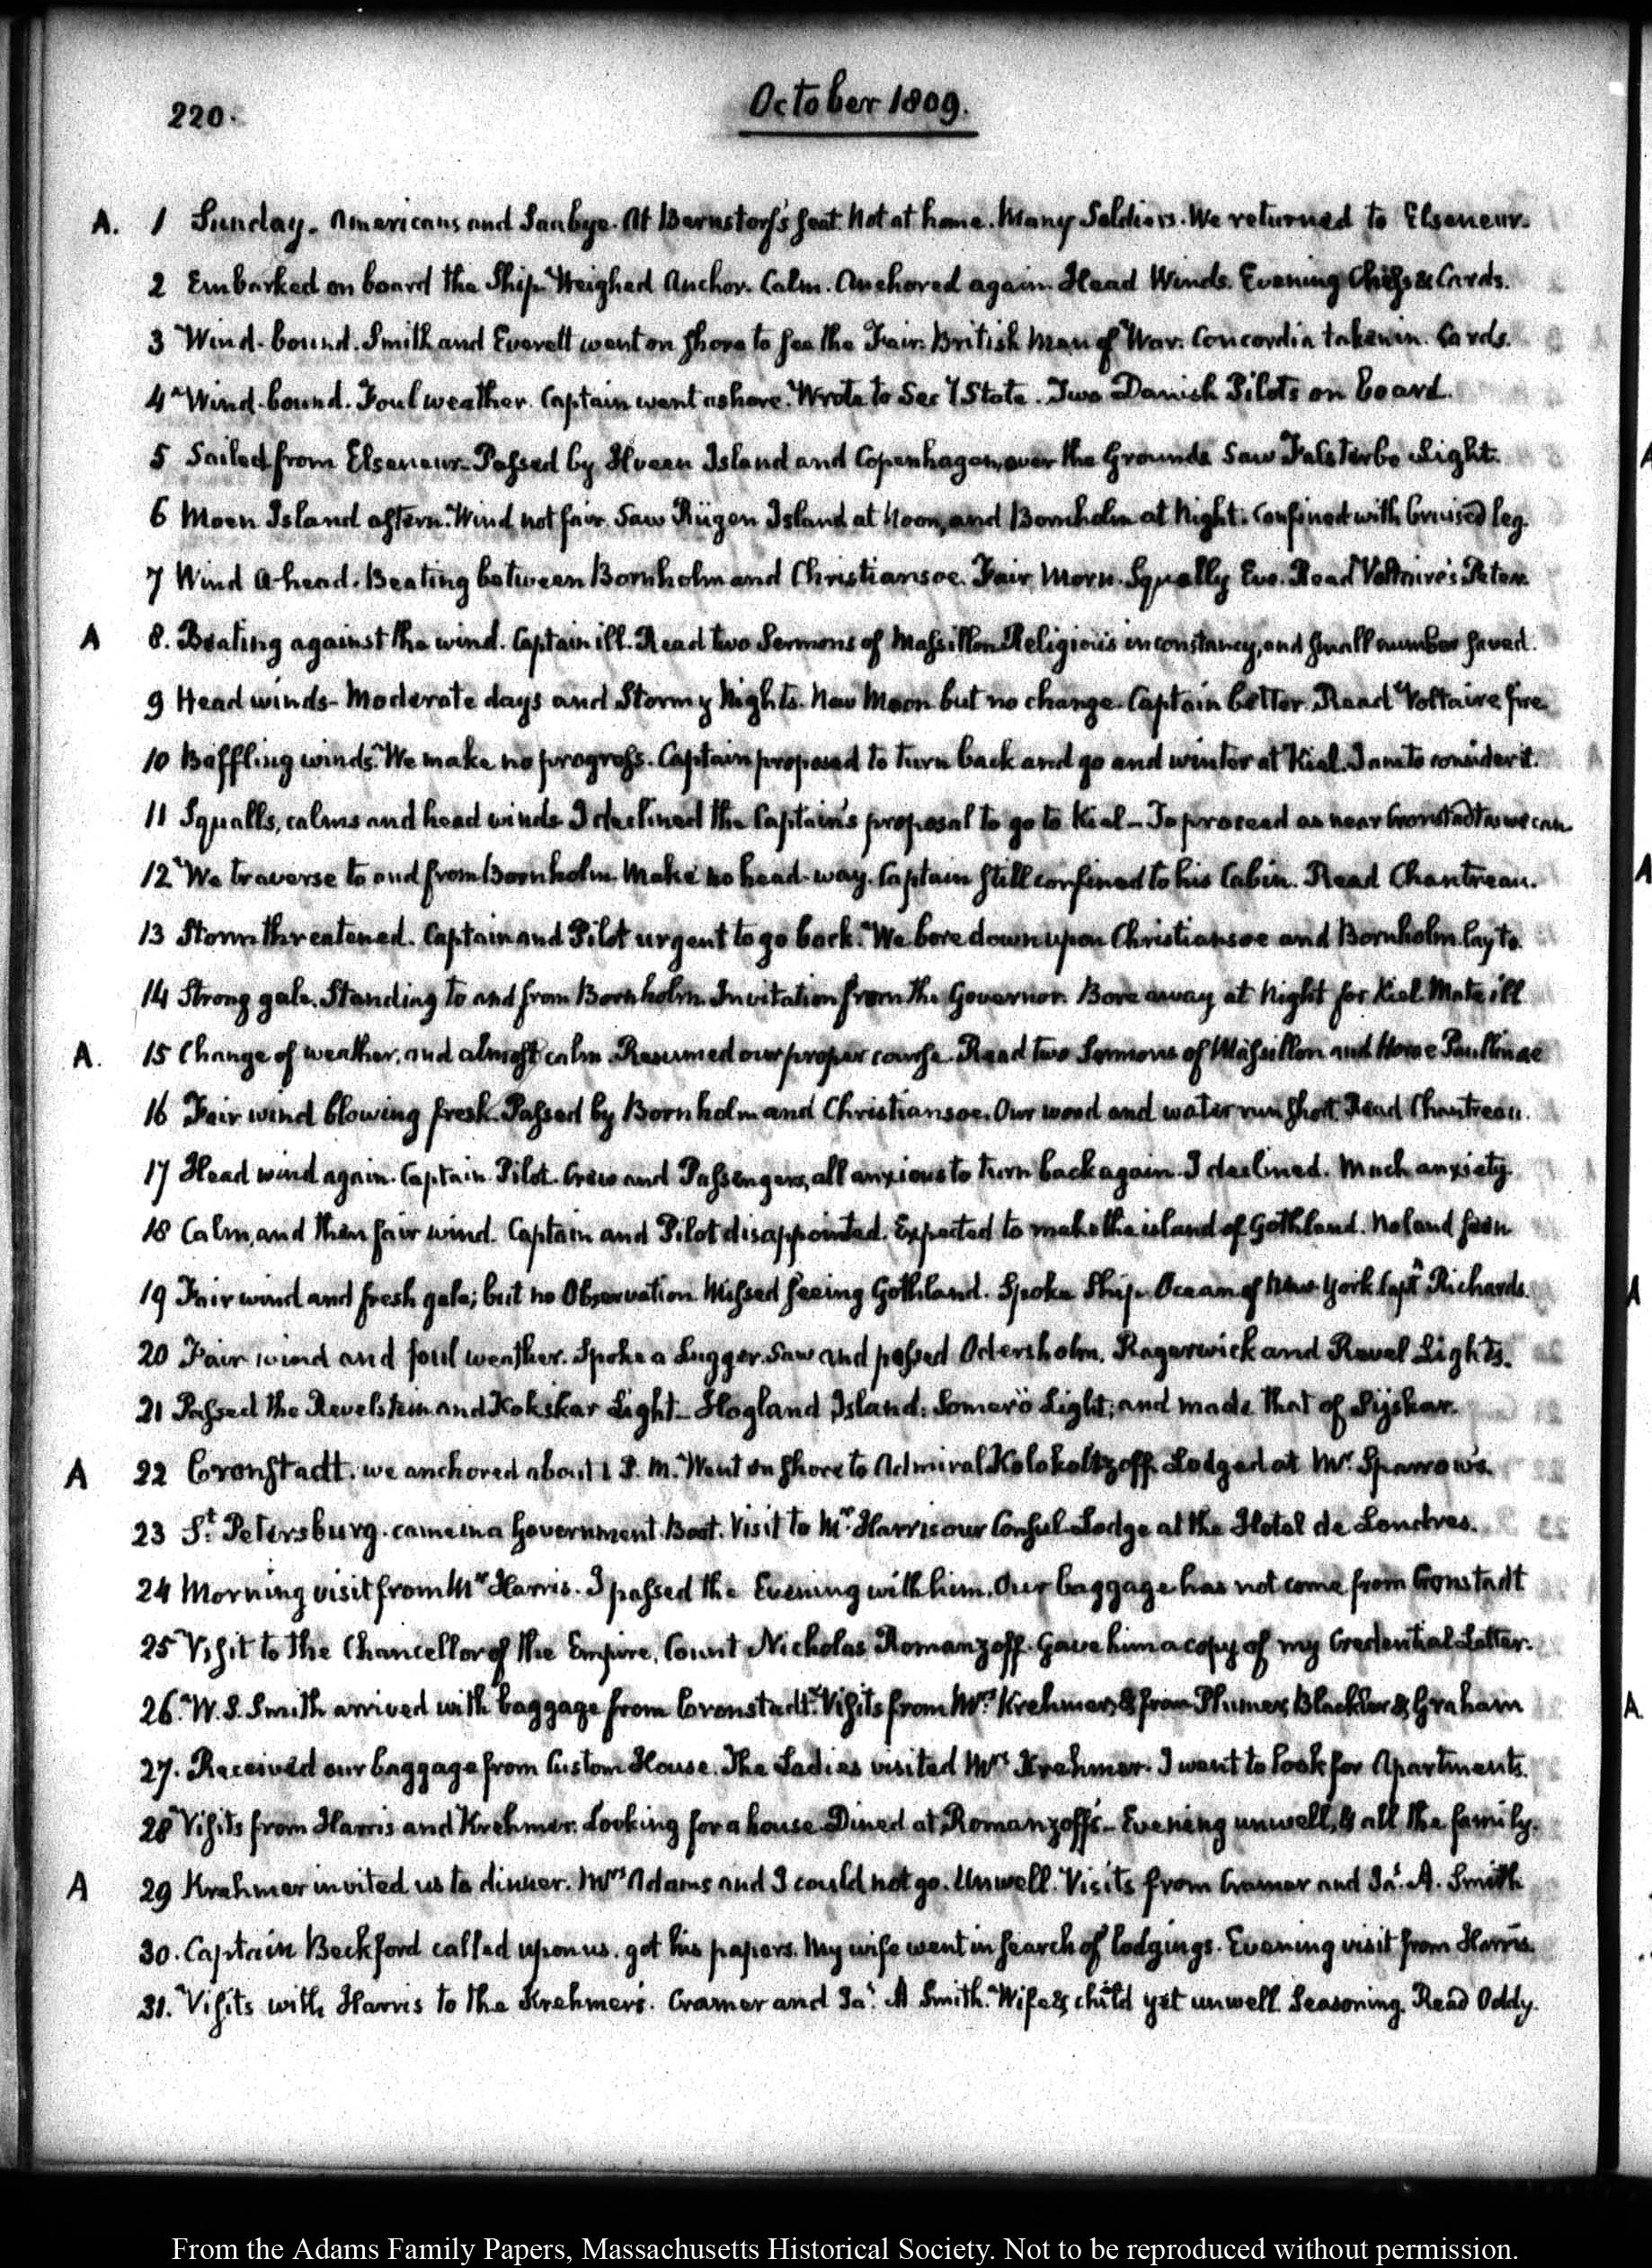 220.
October 1809.
A. 1 Sunday. Americans and Saabye. At Bernstorf's seat. Not at home. Many Soldiers. We returned to Elseneur.
2 Embarked on board the Ship. Weighed Anchor. Calm. Anchored again. Head Winds. Evening Chess & Cards.
3 Wind-bound. Smith and Everett went on shore to see the Fair. British Man of War. Concordia taken in. Cards.
4 Wind-bound. Foul weather. Captain went ashore. Wrote to Sec.y State. Two Danish Pilots on board.
5 Sailed from Elseneur. Passed by Hveen Island and Copenhagen, over the Grounds Saw Falsterbo Light.
6 Moen Island astern. Wind not fair. Saw Rügen Island at Noon, and Bornholm at Night. Confined with bruised leg.
7 Wind A-head. Beating between Bornholm and Christiansoe. Fair Morn. Squally Eve. Read Voltaire's Peter.
A 8. Beating against the wind. Captain ill. Read two Sermons of Massillon Religious inconstancy, and small number saved.
9 Head winds- Moderate days and Stormy Nights. New Moon but no change. Captain better. Read Voltaire fire
10 Baffling winds. We make no progress. Captain proposed to turn back and go and winter at Kiel. I am to consider it.
11 Squalls, calms and head winds. I declined the Captain's proposal to go to Kiel - To proceed as near Cronstadt as we can
12 We traverse to and from Bornholm. Make no head-way. Captain still confined to his Cabin. Read Chantreau.
13 Storm threatened. Captain and Pilot urgent to go back. We bore down upon Christiansoe and Bornholm. lay to.
14 Strong gale. Standing to and from Bornholm. Invitation from the Governor. Bore away at Night for Kiel. Mate ill
A. 15 Change of weather, and almost calm. Resumed our proper course. Read two Sermons of Massillon and Horae Paullinae
16 Fair wind blowing fresh. Passed by Bornholm and Christiansoe. Our wood and water run short. Read Chantreau.
17 Head wind again. Captain. Pilot. Crew and Passengers, all anxious to turn back again. I declined. Much anxiety.
18 Calm, and then fair wind. Captain and Pilot disappointed. Expected to make the island of Gothland. No land seen
19 Fair wind and fresh gale; but no Observation. Missed seeing Gothland. Spoke Ship Ocean of New York Capt.n Richards.
20 Fair wind and foul weather. Spoke a Lugger. Saw and passed Odensholm, Ragerwick and Revel Lights.
21 Passed the Revelstein and Kokskar Light - Hogland Island; Somerö Light; and made that of Sijskar.
A 22 Cronstadt. we anchored about 1 P.M. Went on shore to Admiral Kolokoltzoff. Lodged at Mr. Sparrow's.
23 St. Petersburg. came in a Government Boat. Visit to Mr. Harris our Consul. Lodge at the Hotel de Londres.
24 Morning visit from Mr Harris. I passed the Evening with him. Our baggage has not come from Cronstadt
25 Visit to the Chancellor of the Empire, Count Nicholas Romanzoff. Gave him a copy of my Credential Letter.
26. W. S. Smith arrived with baggage from Cronstadt. Visits from Mrs. Krehmer, & from Plumer, Blackler & Graham
27. Received our baggage from Custom House. The Ladies visited Mrs Krehmer. I went to look for Apartments.
28 Visits from Harris and Krehmer. Looking for a house. Dined at Romanzoff's - Evening unwell, & all the family.
A 29 Krehmer invited us to dinner. Mrs Adams and I could not go. Unwell. Visits from Cramer and Ja.s A. Smith
30. Captain Beckford called upon us. got his papers. My wife went in search of lodgings. Evening visit from Harris.
31. Visits with Harris to the Krehmers. Cramer and Ja.s A Smith. Wife & child yet unwell. Seasoning. Read Oddy.
From the Adams Family Papers, Massachusetts Historical Society. Not to be reproduced without permission.